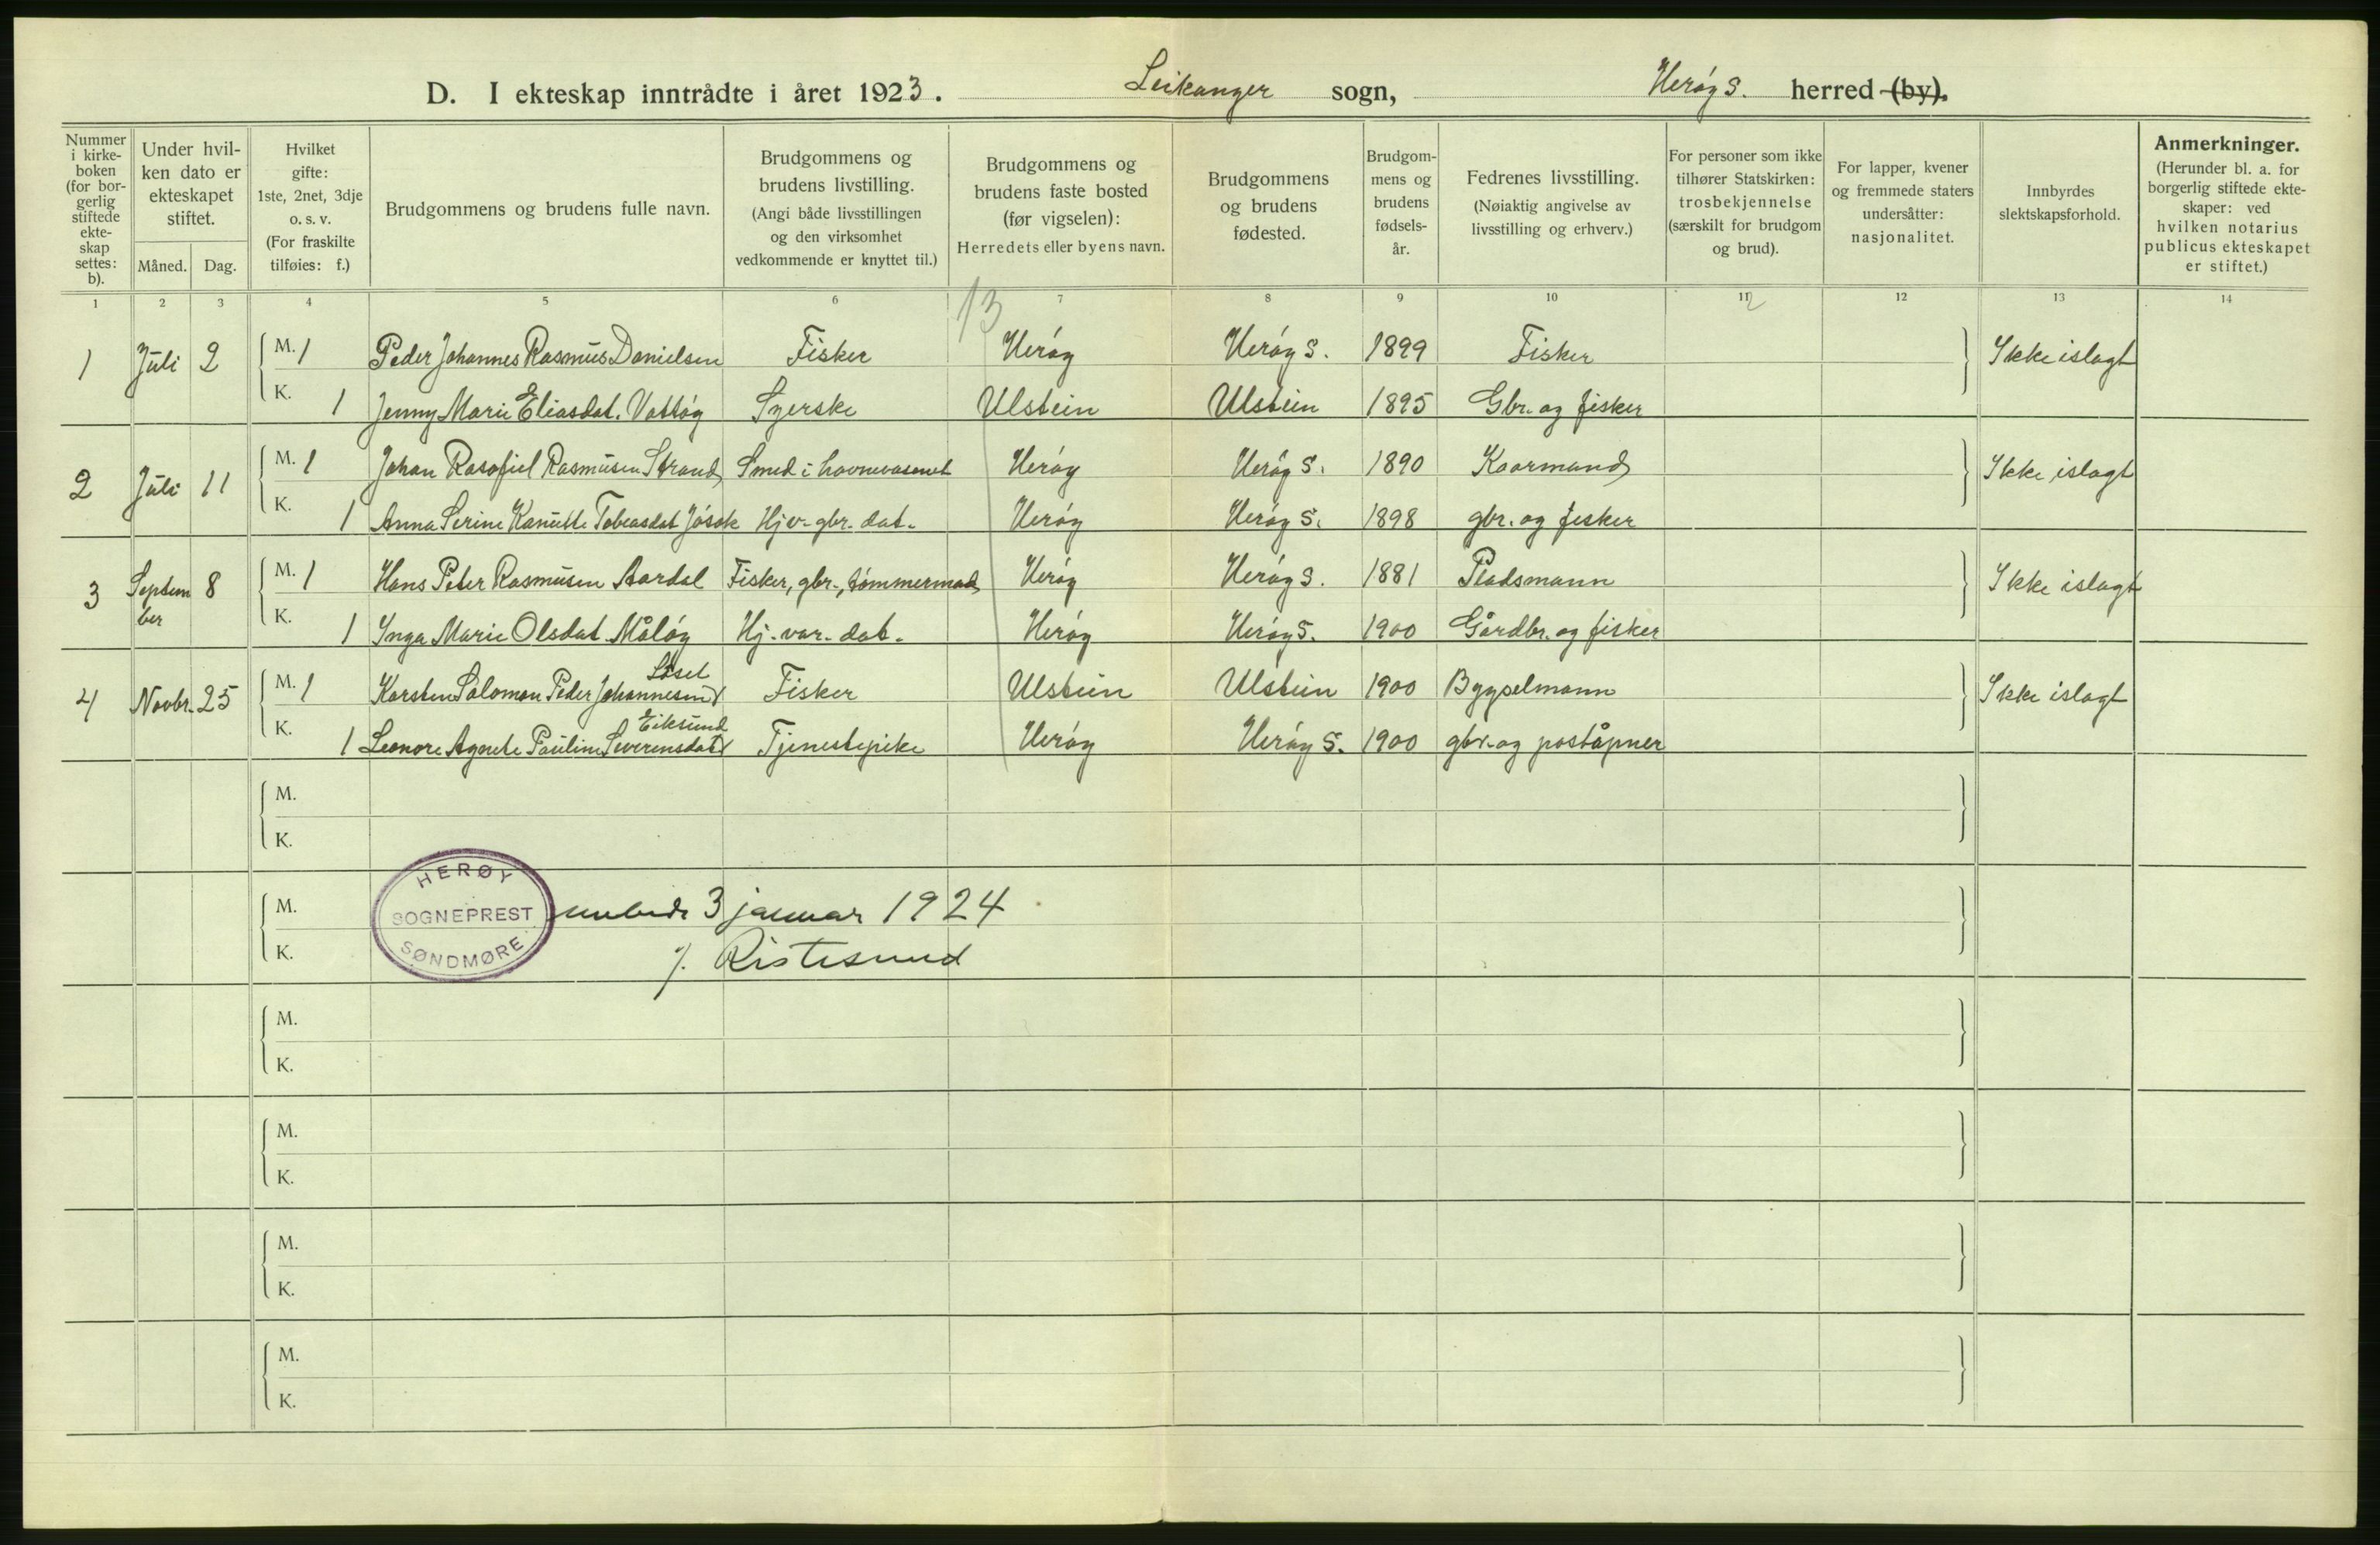 D. I ekteskap inntrådte i året 1923. Leikanger sogn, Herøy S. herred (by).
Nummer i kirke- boken (for bor- gerlig stiftede ekte- skap settes: b).
Under hvil- ken dato er ekteskapet stiftet.
Måned. Dag.
Hvilket gifte: 1ste, 2net, 3dje o. s. v. (For fraskilte tilføies: f.)
Brudgommens og brudens fulle navn.
Brudgommens og brudens livstilling. (Angi både livsstillingen og den virksomhet vedkommende er knyttet til.)
Brudgommens og brudens faste bosted (før vigselen): Herredets eller byens navn.
Brudgommens og brudens fødested.
Brudgom- mens og brudens fødsels- år.
Fedrenes livsstilling. (Nøiaktig angivelse av livsstilling og erhverv.)
For personer som ikke tilhører Statskirken: trosbekjennelse (særskilt for brudgom og brud).
For lapper, kvener og fremmede staters undersåtter: nasjonalitet.
Innbyrdes slektskapsforhold.
Anmerkninger. (Herunder bl. a. for borgerlig stiftede ekte- skaper: ved hvilken notarius publicus ekteskapet er stiftet.)
1 2 3 4 5 6 7 8 9 10 11 12 13 14
13 2
1 Juli 2 M. 1 Peder Johannes Rasmus Danielsen Fisker Herøy Herøy S. 1899 Fisker Ikke islagt
K. 1 Jenny Marie Eliasdat. Vattøy Syerske Ulstein Ulstein 1895 Gbr. og fisker
2 Juli 11 M. 1 Johan Rasmusen Strand Smed i havnevæsenet Herøy Herøy S. 1890 Kaarmand Ikke islagt
K. 1 Anna Serine Kanutte Tobeasdat Jøsok Hjv. gbr. dat. Herøy Herøy S. 1898 gbr. og fisker
3 Septem ber 8 M. 1 Hans Peter Rasmusen Aardal Fisker, gbr., tømmermad Herøy Herøy S. 1881 Pladsmann Ikke islagt
K. 1 Inga Marie Olsdat. Måløy Hj. var. dat. Herøy Herøy S. 1900 Gårdbr. og fisker
Løset
4 Novbr. 25 M. 1 Karsten Salomon Peder Johannesen Fisker Ulstein Ulstein 1900 Bygselmann Ikke islagt
Eiksund
K. 1 Leonore Agnete Pauline Severensdat Tjenestepike Herøy Herøy S. 1900 gbr. og poståpner
M.
K.
HERØY
M. SOGNEPREST embede 3 januar 1924
K. SØNDMØRE J. Ristesund
M.
K.
M.
K.
M.
K.
M.
K.